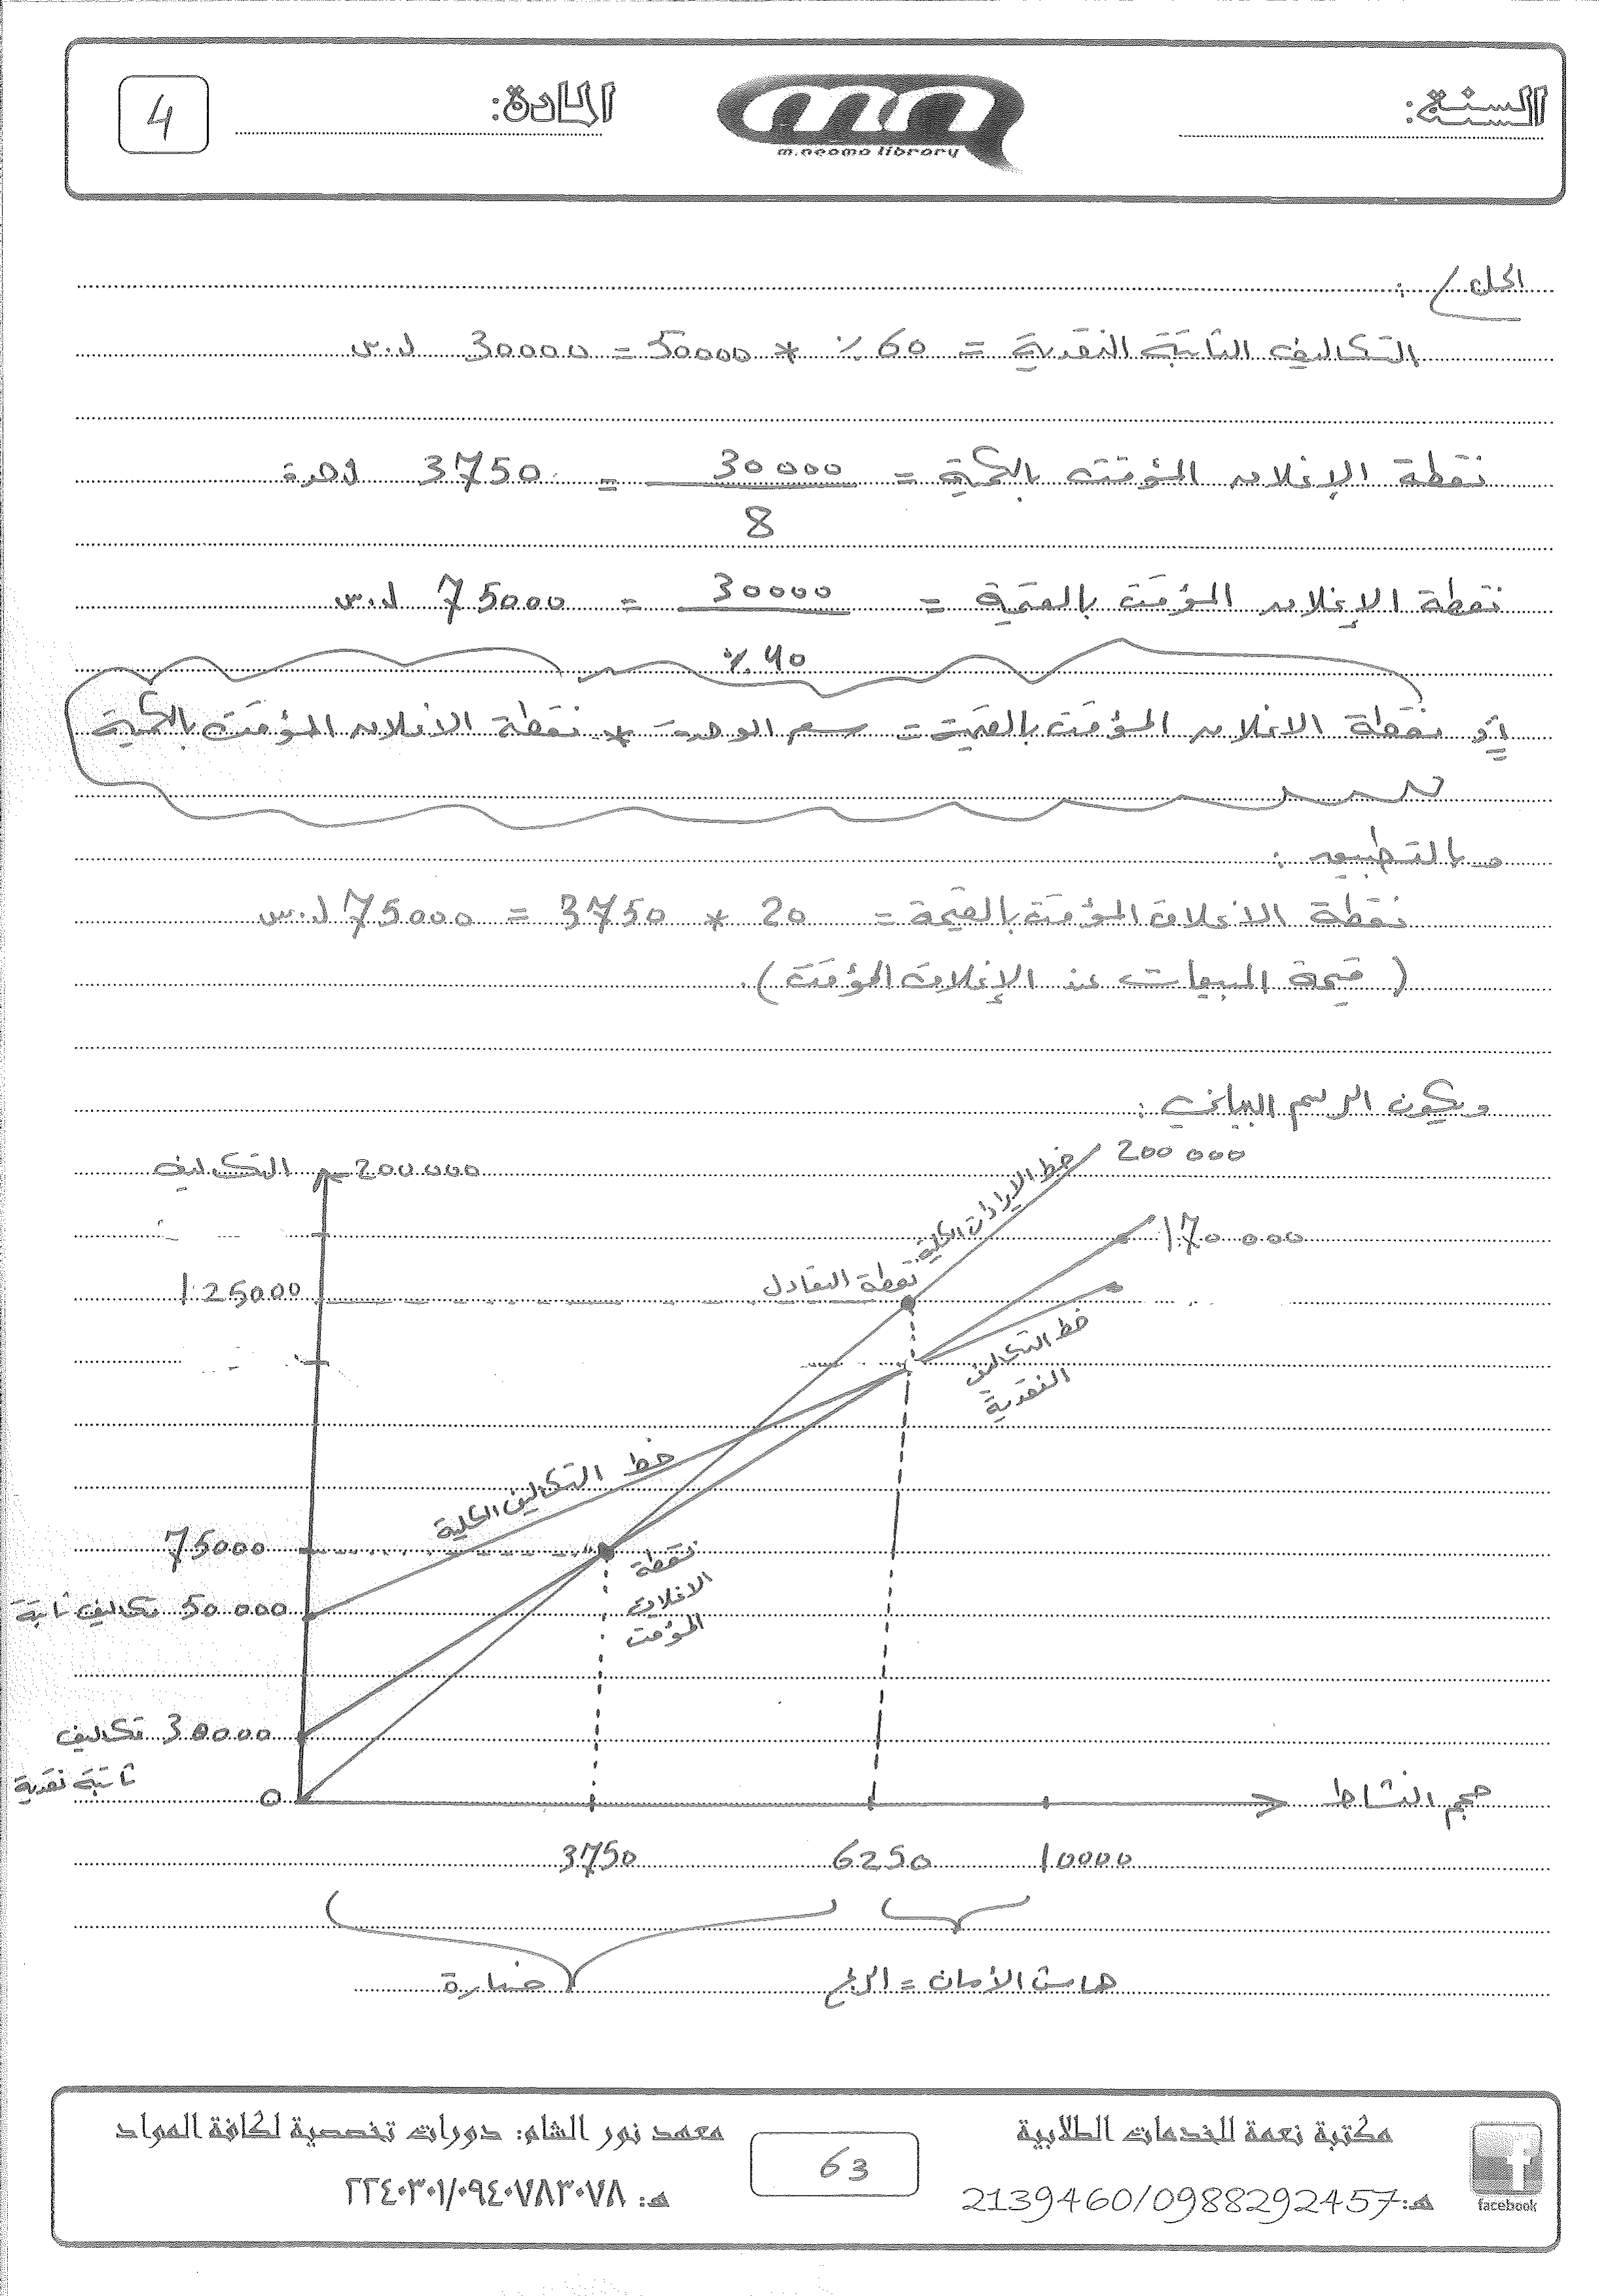 السنة:
المادة:
4
m.neama library
الحل / :
التكاليف الثابتة النقدية = 60 ٪ * 50000 = 30000 ل.س
نقطة الإغلاق المؤقت بالكمية = 30000 / 8 = 3750 وحدة
نقطة الإغلاق المؤقت بالقيمة = 30000 / 40 ٪ = 75000 ل.س
أو نقطة الاغلاق المؤقت بالقيمة = سعر الوحدة * نقطة الاغلاق المؤقت بالكمية
وبالتطبيق :
نقطة الاغلاق المؤقت بالقيمة = 20 * 3750 = 75000 ل.س
( قيمة المبيعات عند الإغلاق المؤقت ).
ويكون الرسم البياني :
التكاليف
200000
خط الايرادات الكلية
200 000
170 000
125000
نقطة التعادل
خط التكاليف النقدية
خط التكاليف الكلية
75000
نقطة الاغلاق المؤقت
50 000 تكاليف ثابتة
30000 تكاليف ثابتة نقدية
0
حجم النشاط
3750
6250
10000
هامش الأمان = الربح
خسارة
مكتبة نعمة للخدمات الطلابية
هـ: 2139460/0988292457
facebook
63
معهد نور الشام: دورات تخصصية لكافة المواد
هـ: ٢٢٤٠٣٠١/٠٩٤٠٧٨٣٠٧٨